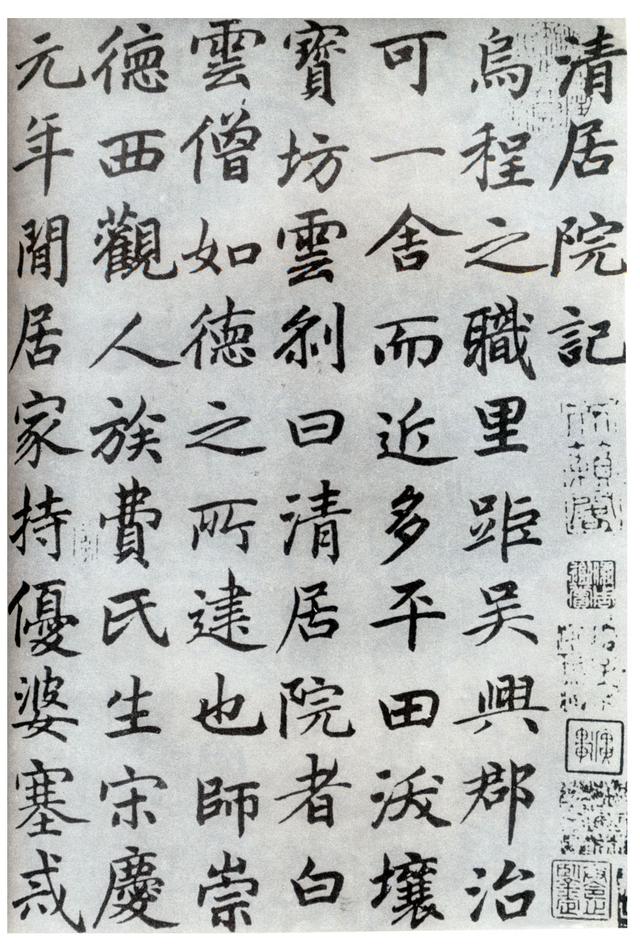 清居院記
烏程之職里距吴興郡治
可一舍而近多平田沃壤
寶坊雲刹曰清居院者白
雲僧如德之所建也師崇
德西觀人族費氏生宋慶
元年閒居家持優婆塞戒